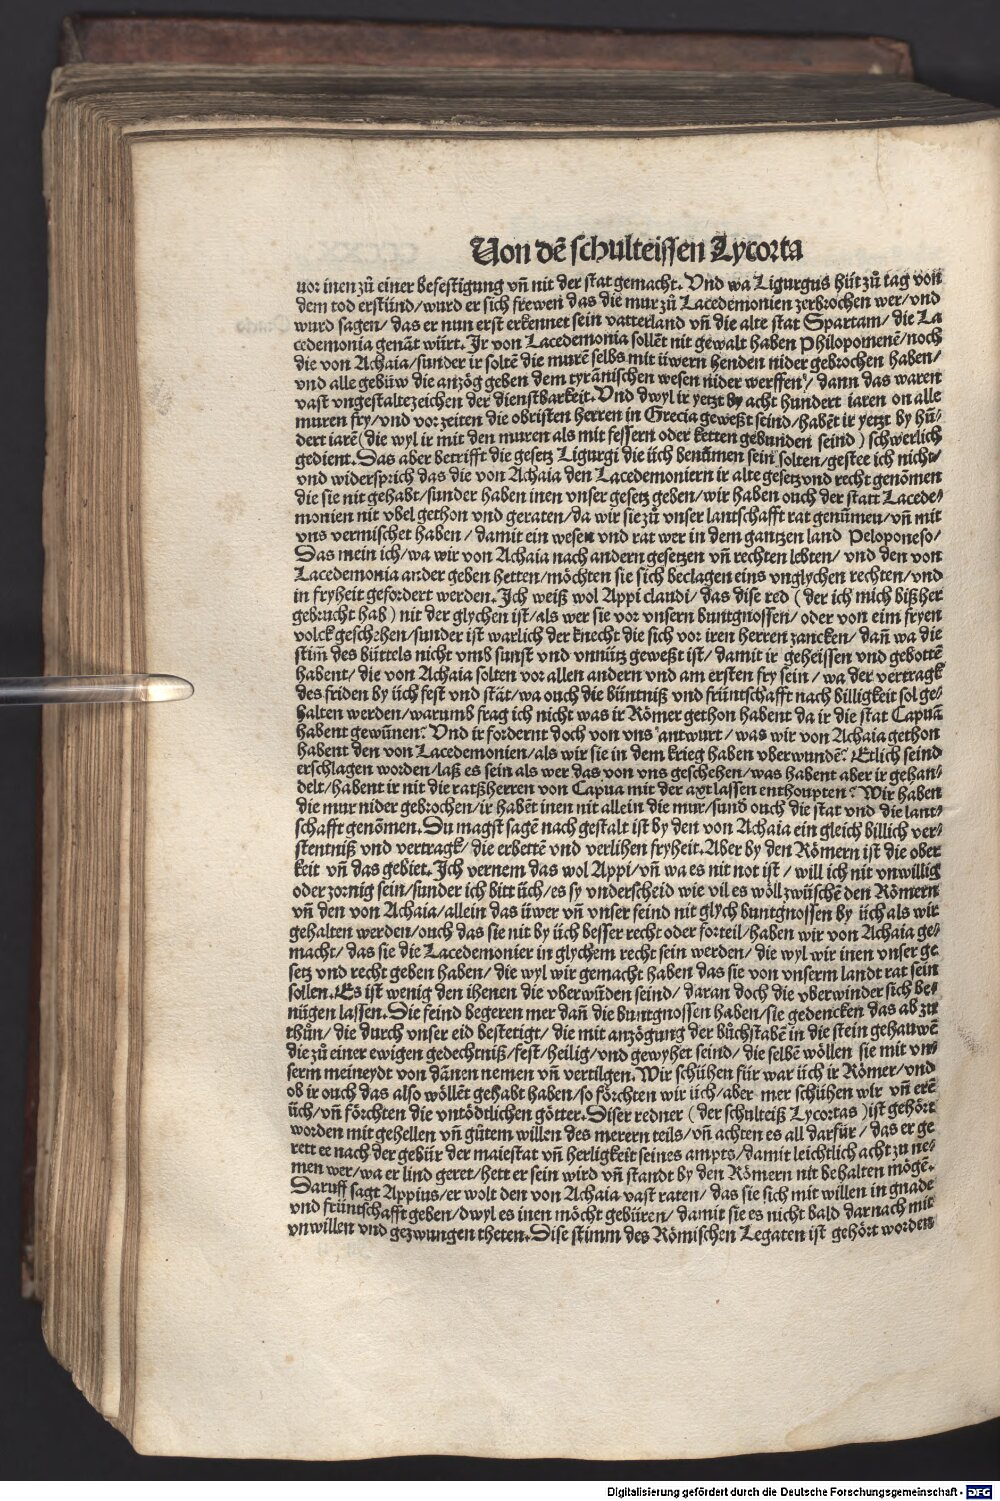 Von dē schulteissen Lycorta
vor inen zů einer befestigung vñ nit der stat gemacht. Vnd wa Ligurgus hüt zů tag von
dem tod erstünd/wurd er sich frewen das die mur zů Lacedemonien zerbrochen wer/vnd
wurd sagen/das er nun erst erkennet sein vatterland vñ die alte stat Spartam/die La
cedemonia genāt würt. Ir von Lacedemonia sollēt nit gewalt haben Philopomenē/noch
die von Achaia/sunder ir soltē die murē selbs mit üwern henden nider gebrochen haben/
vnd alle gebüw die anzög geben dem tyrānischen wesen nider werffen/dann das waren
vast vngestalte zeichen der dienstbarkeit. Vnd dwyl ir yetzt by acht hundert iaren on alle
muren fry/vnd vor zeiten die obristen herren in Grecia geweßt seind/habēt ir yetzt by hū/
dert iarē(die wyl ir mit den muren als mit fessern oder ketten gebunden seind) schwerlich
gedient. Das aber betrifft die gesetz Ligurgi die üch benūmen sein solten/gestee ich nicht/
vnd widersprich das die von Achaia den Lacedemoniern ir alte gesetz vnd recht genōmen
die sie nit gehabt/sunder haben inen vnser gesetz geben/wir haben ouch der statt Lacede/
monien nit vbel gethon vnd geraten/da wir sie zů vnser lantschafft rat genūmen/vñ mit
vns vermischet haben/damit ein wesen vnd rat wer in dem gantzen land Peloponeso/
Das mein ich/wa wir von Achaia nach andern gesetzen vñ rechten lebten/vnd den von
Lacedemonia ander geben hetten/möchten sie sich beclagen eins vnglychen rechten/vnd
in fryheit gefordert werden. Ich weiß wol Appi claudi/das dise red (der ich mich bißher
gebrucht hab) nit der glychen ist/als wer sie vor vnsern buntgnossen/oder von eim fryen
volck geschehen/sunder ist warlich der knecht die sich vor iren herren zancken/dañ wa die
stim̄ des büttels nicht vmb sunst vnd vnnütz geweßt ist/damit ir geheissen vnd gebottē
habent/die von Achaia solten vor allen andern vnd am ersten fry sein/wa der vertragk
des friden by üch fest vnd stät/wa ouch die büntniß vnd früntschafft nach billigkeit sol ge/
halten werden/warumb frag ich nicht was ir Römer gethon habent da ir die stat Capuā
habent gewūnen? Vnd ir fordernt doch von vns antwurt/was wir von Achaia gethon
habent den von Lacedemonien/als wir sie in dem krieg haben vberwundē? Etlich seind
erschlagen worden/laß es sein als wer das von vns geschehen/was habent aber ir gehan/
delt/habent ir nit die ratßherren von Capua mit der axt lassen enthoupten? Wir haben
die mur nider gebrochen/ir habēt inen nit allein die mur/sund̄ ouch die stat vnd die lant/
schafft genōmen. Du magst sagē nach gestalt ist by den von Achaia ein gleich billich ver/
stentniß vnd vertragk/die erbettē vnd verlihen fryheit. Aber by den Römern ist die ober
keit vñ das gebiet. Ich vernem das wol Appi/vñ wa es nit not ist/will ich nit vnwillig
oder zornig sein/sunder ich bitt üch/es sy vnderscheid wie vil es wöll zwüschē den Römern
vñ den von Achaia/allein das üwer vñ vnser feind nit glych buntgnossen by üch als wir
gehalten werden/ouch das sie nit by üch besser recht oder forteil/haben wir von Achaia ge/
macht/das sie die Lacedemonier in glychem recht sein werden/die wyl wir inen vnser ge
setz vnd recht geben haben/die wyl wir gemacht haben das sie von vnserm landt rat sein
sollen. Es ist wenig den ihenen die vberwūden seind/daran doch die vberwinder sich be/
nügen lassen. Die feind begeren mer dañ die buntgnossen haben/sie gedencken das ab zu
thůn/die durch vnser eid bestetigt/die mit anzögung der bůchstabē in die stein gehauwē
die zů einer ewigen gedechtniß/fest/heilig/vnd gewyhet seind/die selbē wöllen sie mit vn/
serm meineydt von dānen nemen vñ vertilgen. Wir schühen für war üch ir Römer/vnd
ob ir ouch das also wöllēt gehabt haben/so förchten wir üch/aber mer schühen wir vñ erē
üch/vñ förchten die vntödtlichen götter. Diser redner (der schulteiß Lycortas) ist gehört
worden mit gehellen vñ gůtem willen des merern teils/vñ achten es all darfür/das er ge
rett ee nach der gebür der maiestat vñ herligkeit seines ampts/damit leichtlich acht zu ne/
men wer/wa er lind geret/hett er sein wird vñ standt by den Römern nit behalten mögē.
Daruff sagt Appius/er wolt den von Achaia vast raten/das sie sich mit willen in gnade
vnd früntschafft geben/dwyl es inen möcht gebüren/damit sie es nicht bald darnach mit
vnwillen vnd gezwungen theten. Dise stimm des Römischen Legaten ist gehört worden
Digitalisierung gefördert durch die Deutsche Forschungsgemeinschaft - DFG